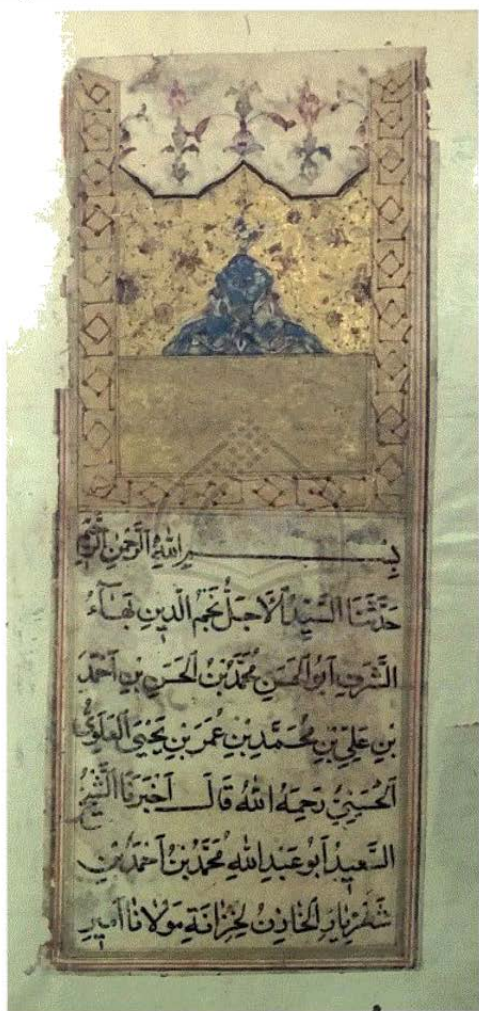 بِسْــــمِ اللهِ الرَّحْمٰنِ الرَّحِيْمِ
حَدَّثَنَا السَّيِّدُ الْاَجَلُّ نَجْمُ الدِّينِ بَهَآءُ
الشَّرَفِ اَبُو الْحَسَنِ مُحَمَّدُ بْنُ الْحَسَنِ بْنِ اَحْمَدَ
بْنِ عَلِيِّ بْنِ مُحَمَّدِ بْنِ عُمَرَ بْنِ يَحْيَى الْعَلَوِيُّ
الْحُسَيْنِيُّ رَحِمَهُ اللهُ قَالَ اَخْبَرَنَا الشَّيْخُ
السَّعِيدُ اَبُو عَبْدِ اللهِ مُحَمَّدُ بْنُ اَحْمَدَ بْنِ
شَهْرِيَارَ الْخَازِنُ لِخِزَانَةِ مَوْلَانَا اَمِيرِ